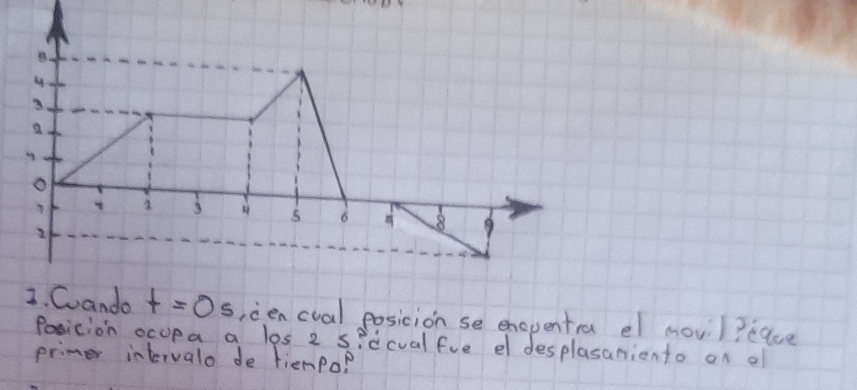 5
4
3
2
1
0
1
2
1 2 3 4 5 6 7 8 9
1. Cuando t = 0 s, ¿en cual posición se encuentra el movil? ¿que
Posición ocupa a los 2 s? ¿cual fue el desplasamiento en el
primer intervalo de tiempo?